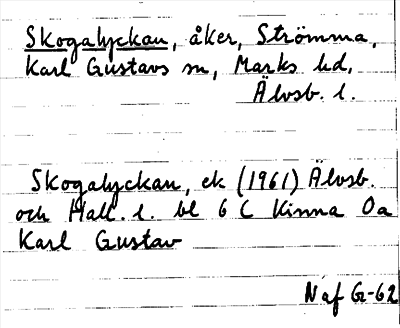 Skogalyckan, åker, Strömma,
Karl Gustavs sn, Marks hd,
Älvsb. l.
Skogalyckan, ek (1961) Älvsb.
och Hall. l. bl 6 C Kinna 0a
Karl Gustav
N af G-62